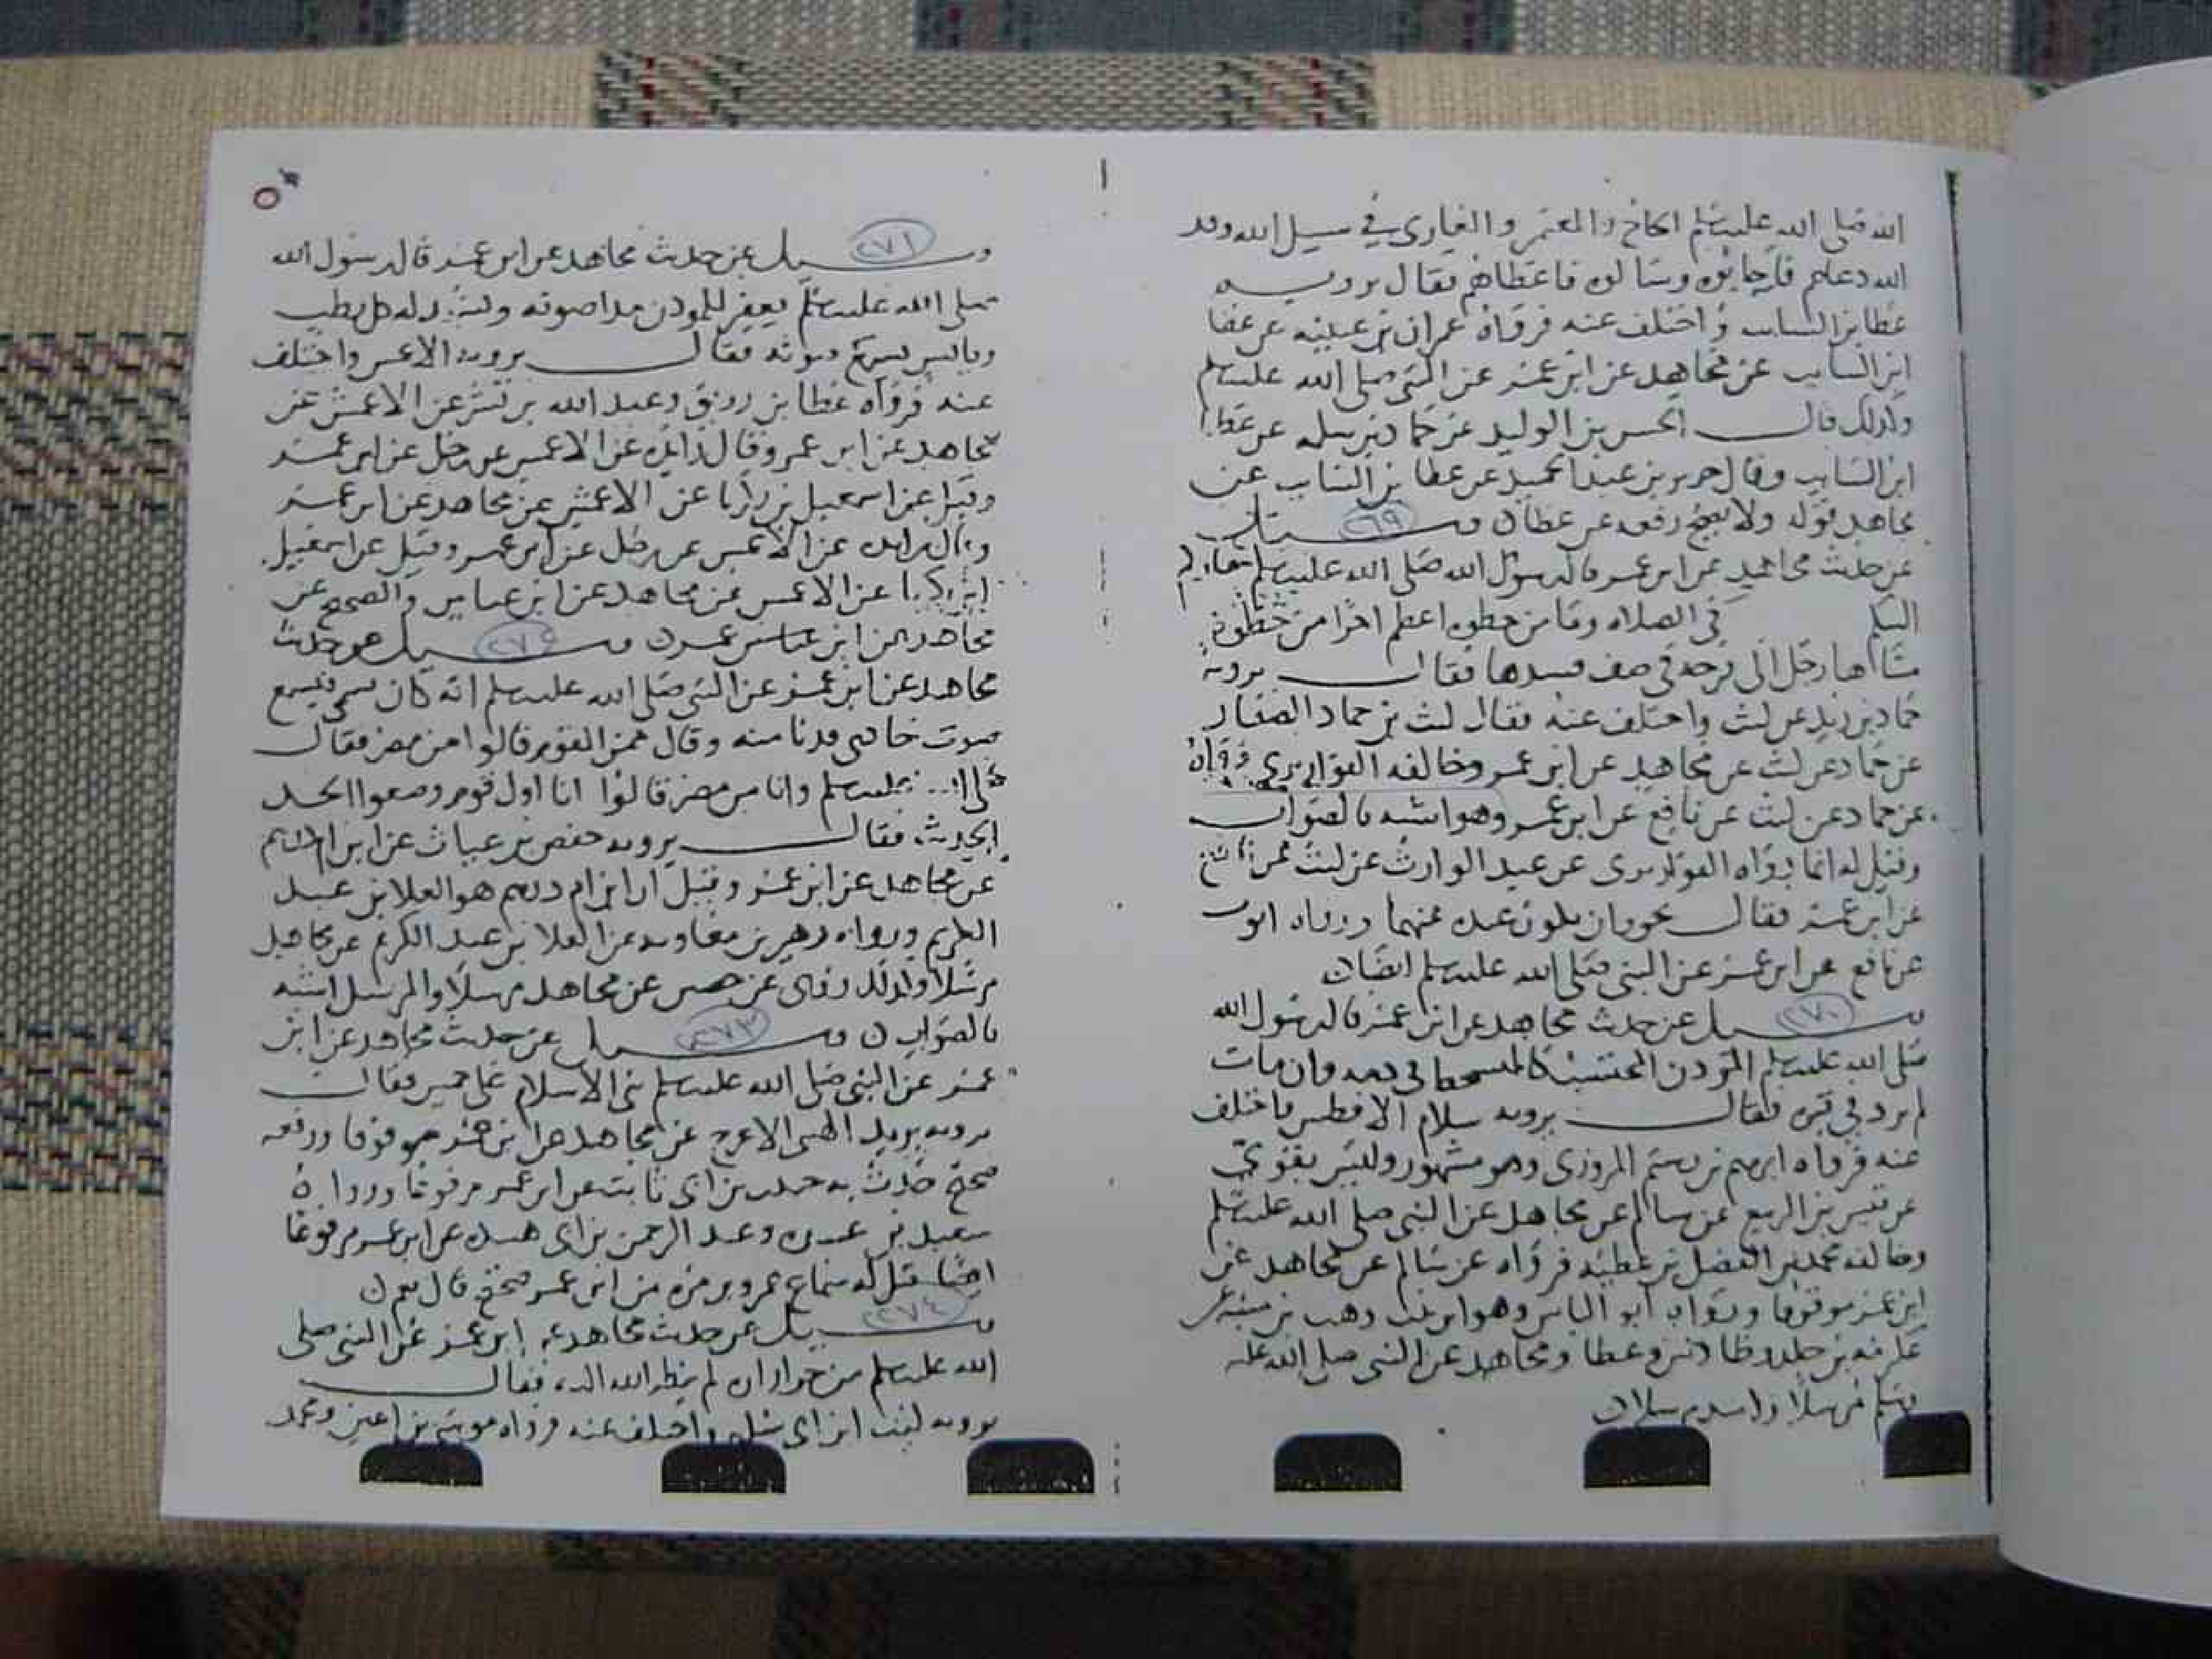 الله صلى الله عليه وسلم الحاج والمعتمر والغازي في سبيل الله وفد
الله دعاهم فأجابوه وسالوه فاعطاهم فقال يرويه
عطا بن السايب واختلف عنه فرواه عمران بن عيينه عن عطا
ابن السايب عن مجاهد عن ابن عمر عن النبي صلى الله عليه وسلم
وكذلك قال الحسن بن الوليد عن حماد بن سلمه عن عطا
ابن السايب وقال جرير بن عبد الحميد عن عطا بن السايب عن
مجاهد قوله ولا يصح رفعه عن عطا ن وسئل ٢٦٩
عن حديث مجاهد عن ابن عمر قال رسول الله صلى الله عليه وسلم
في الصلاه وما من خطوه اعظم اجرا من خطوه
مشاها رجل الى فرجه في صف فسدها فقال يرويه
حماد بن زيد عن ليث واختلف عنه فقال ليث بن حماد الصفار
عن حماد عن ليث عن مجاهد عن ابن عمر وخالفه القواريري فرواه
عن حماد عن ليث عن نافع عن ابن عمر وهو اشبه بالصواب
وقيل له انما رواه القواريري عن عبد الوارث عن ليث عن نافع
عن ابن عمر فقال يجوز ان يكون عنده عنهما ورواه ايوب
عن نافع عن ابن عمر عن النبي صلى الله عليه وسلم ايضا ن
٢٧٠ وسئل عن حديث مجاهد عن ابن عمر قال رسول الله
صلى الله عليه وسلم المؤذن المحتسب كالمتشحط في دمه وان مات
لم يرد في قبره فقال يرويه سلام الافطس واختلف
عنه فرواه ابرهيم بن رستم المروزي وهو مشهور وليس بقوي
عن قيس بن الربيع عن سالم عن مجاهد عن النبي صلى الله عليه وسلم
وخالفه محمد بن الفضل بن عطيه فرواه عن سالم عن مجاهد عن
ابن عمر موقوفا ورواه ابو الياس وهو ابن بنت وهب بن منبه عن
عكرمه بن خالد وطاوس وعطا ومجاهد عن النبي صلى الله عليه
وسلم مرسلا
وسئل ٢٧١ عن حديث مجاهد عن ابن عمر قال رسول الله
صلى الله عليه وسلم يغفر للمؤذن مدا صوته ويشهد له كل رطب
ويابس يسمع صوته فقال يرويه الاعمش واختلف
عنه فرواه عطا بن رزيق وعبد الله بن بشر عن الاعمش عن
مجاهد عن ابن عمر وقال زايده عن الاعمش عن رجل عن ابن عمر
وقيل عن اسمعيل بن زكريا عن الاعمش عن مجاهد عن ابن عمر
وقال زايده عن الاعمش عن رجل عن ابن عمر وقيل عن اسمعيل
ابن زكريا عن الاعمش عن مجاهد عن ابن عباس والصحيح عن
مجاهد عن ابن عمر ن وسئل ٢٧٢ عن حديث
مجاهد عن ابن عمر عن النبي صلى الله عليه وسلم انه كان فسمع
صوت حادي فدنا منه وقال ممن القوم قالوا من مضر فقال
صلى الله عليه وسلم وانا من مضر قالوا انا اول قوم وضعوا الحدا
الحديث فقال يرويه حفص بن غياث عن ابن ادهم
عن مجاهد عن ابن عمر وقيل ان ابن ادهم هو العلا بن عبد
الكريم ورواه زهير بن معاويه عن العلا بن عبد الكريم عن مجاهد
مرسلا وكذلك روى عن حصين عن مجاهد مرسلا والمرسل اشبه
بالصواب ن وسئل ٢٧٣ عن حديث مجاهد عن ابن
عمر عن النبي صلى الله عليه وسلم بني الاسلام على خمس فقال
يرويه الاعرج عن مجاهد عن ابن عمر موقوفا ورفعه
صحيح حدث به حبيب بن ابي ثابت عن ابن عمر مرفوعا ورواه
سعيد بن عبيده وعبد الرحمن بن ابي عن ابن عمر مرفوعا
ايضا قيل له سماع عمرو بن مره من ابن عمر صحيح قال نعم ن
وسئل ٢٧٤ عن حديث مجاهد عن ابن عمر عن النبي صلى
الله عليه وسلم من جر ازاره لم ينظر الله اليه فقال
يرويه ليث ابن ابي سليم واختلف عنه فرواه موسى بن اعين ومحمد